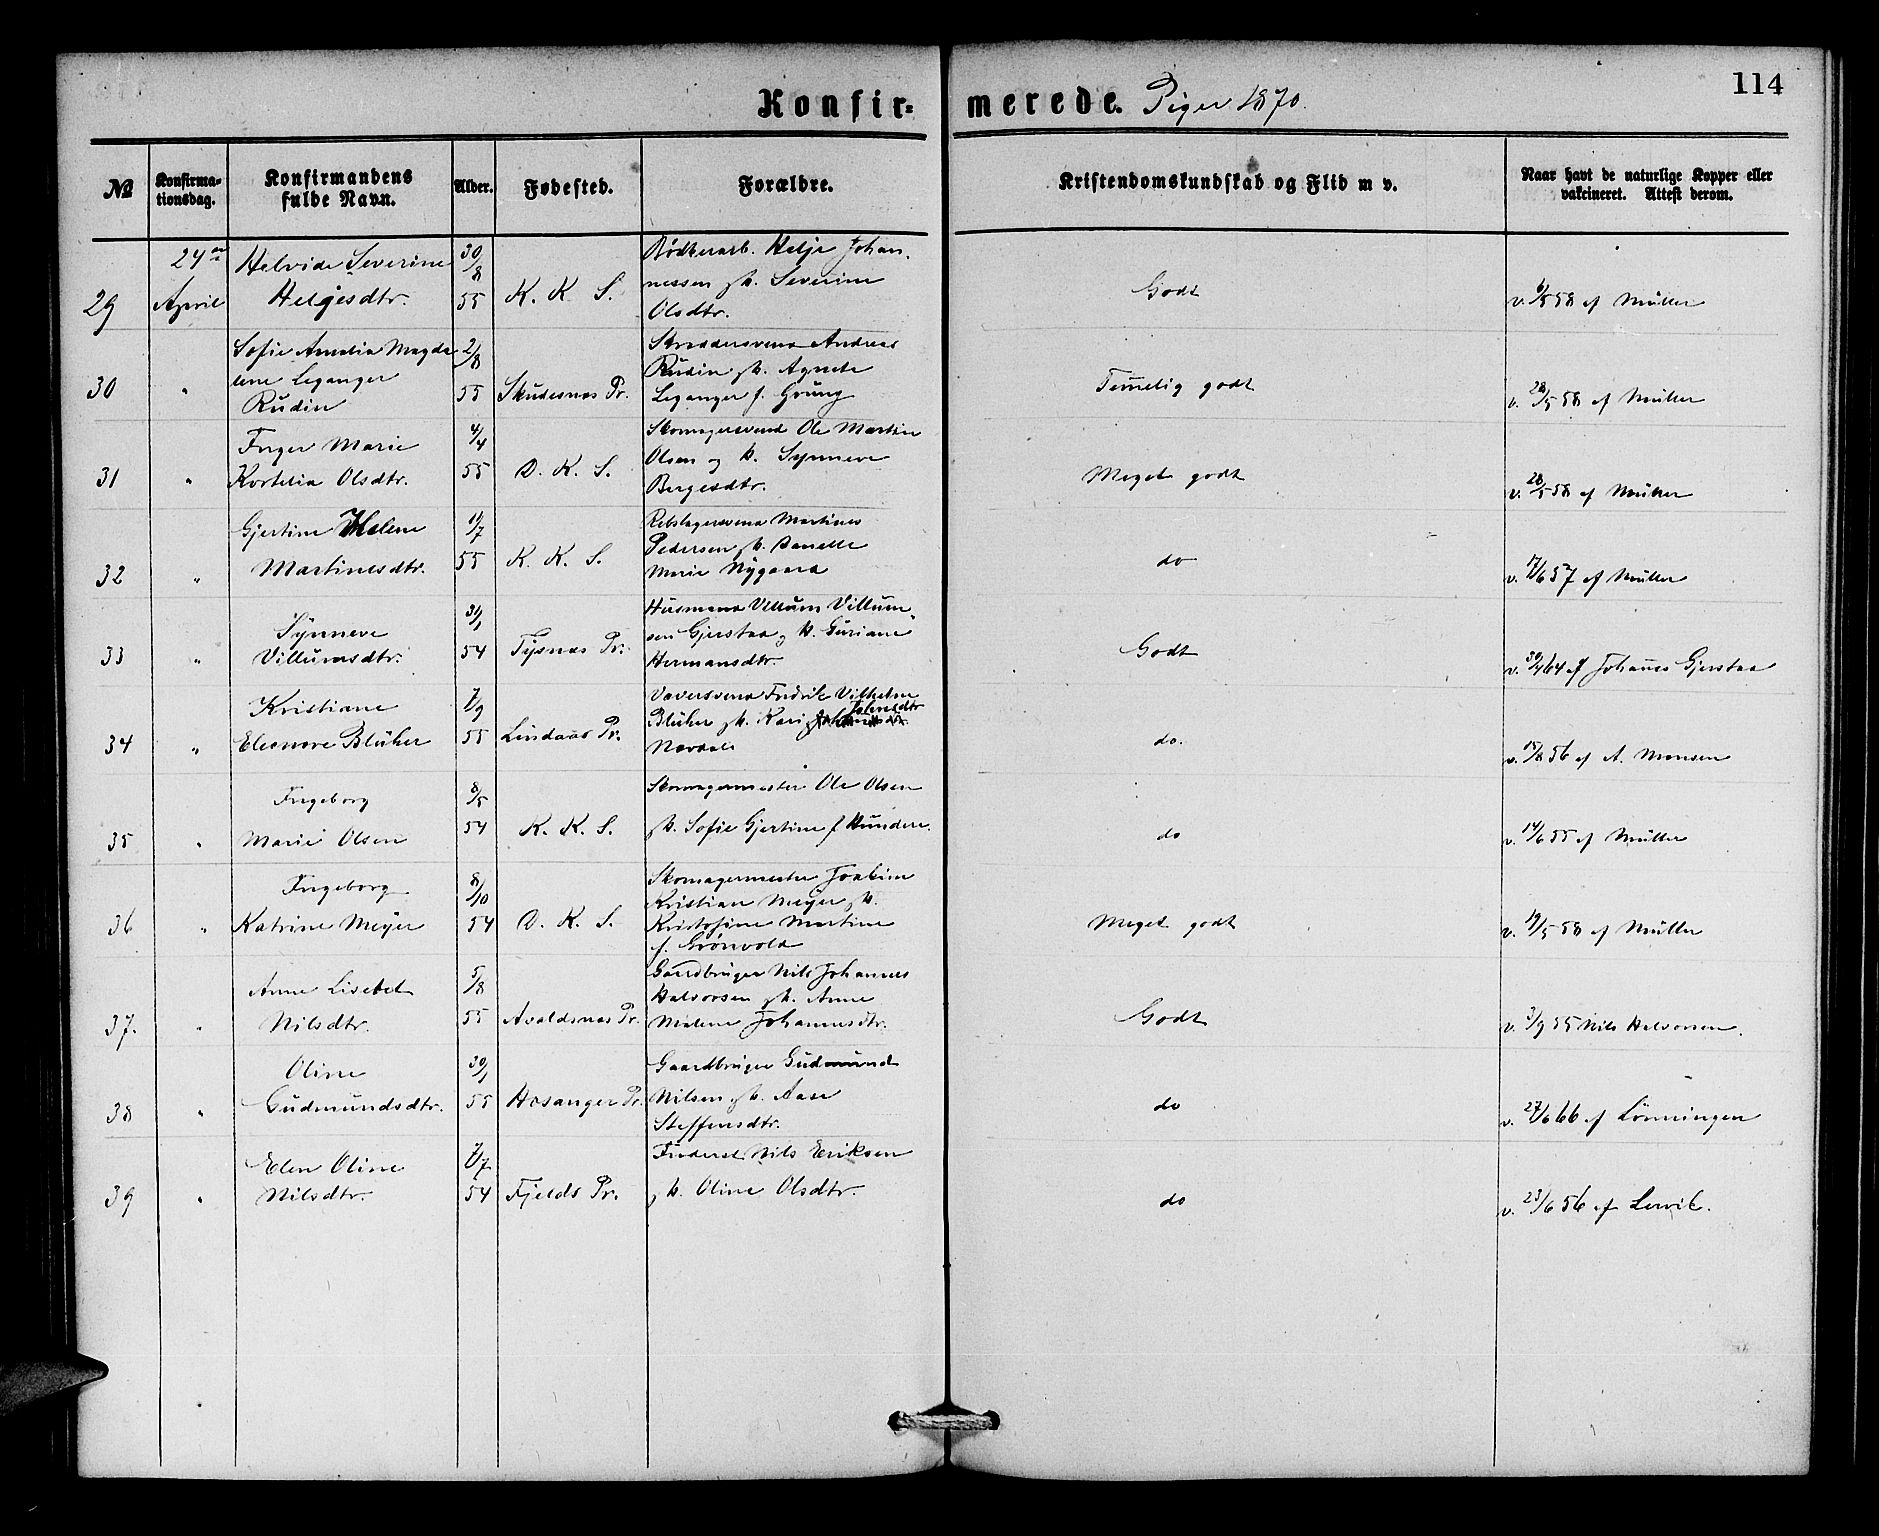 114
Konfir= merede. Piger 1870.
№ Konfirma-tionsdag. Konfirmandens fulde Navn. Alder. Fødested. Forældre. Kristendomskundskab og Flid m v. Naar havt de naturlige Kopper eller vakcineret. Attest derom.
24de Helvide Severine 30/8 Bødkerarb. Helje Johan-
29 April Helgesdtr. 55 K. K. S. nessen og h. Severine Godt v. 6/5 58 af Müller
Olsdtr.
Sofie Amalia Magda 2/8 Skræddersvend Andreas
lene Leganger Rudin og h. Agnete
30 " Rudin 55 Skudesnæs Pr. Leganger f. Grung Temelig godt v. 28/5 58 af Müller
Inger Marie 4/4 Skomagersvend Ole Martin
31 " Kortelia Olsdtr. 55 D. K. S. Olsen og h. Synneve Meget godt v. 28/5 58 af Müller
Bergesdtr.
Gjertine Helene 11/7 Rebslagersvend Martines
32 " Martinesdtr. 55 K. K. S. Pedersen og h. Danelle do v. 17/6 57 af Müller
Marie Nygaard
Synneve 31/1 Husmand Villum Villum-
33 " Villumsdtr. 54 Tysnæs Pr. sen Gjerstad og h. Guriane Godt v. 30/4 64 af Johannes Gjerstad
Hermansdtr.
Kristiane 7/9 Væversvend Fredrik Vilhelm
34 " Eleonore Blüher 55 Lindaas Pr. Blüher og h. Kari Johnsdtr do. v. 15/8 56 af A. Monsen
Nordal
Ingeborg 8/5 Skomagermester Ole Olsen
35 " Marie Olsen 54 K. K. S. og h. Sofie Gjertine f Hundere. do v. 14/6 55 af Müller
Ingeborg 8/10 Skomagermester Joakim
36 " Katrine Meyer 54 D. K. S. Kristian Meyer og h. Meget godt v. 19/5 58 af Müller
Kristofine Martine
f. Grönvold
Anne Lisebet 5/8 Gaardbruger Nils Johannes
37. " Nilsdtr. 55 Avaldsnæs Pr. Halvorsen og h. Anne Godt v. 3/9 55 Nils Halvorsen.
Malene Johannesdtr.
Oline 30/1 Gaardbruger Gudmund
38 " Gudmundsdtr. 55 Hosanger Pr. Nilsen og h. Aase do v. 27/6 66 af Lönningen
Steffensdtr.
Elen Oline 7/7 Inderst Nils Eriksen
39 " Nilsdtr. 54 Fjelds Pr. og h. Oline Olsdtr. do v. 23/6 56 af Lervik.